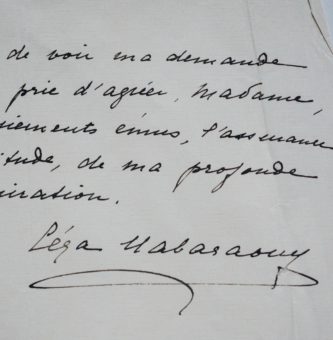 de voir ma demande
prie d'agréer, Madame,
ciements émus, l'assurance
itude, de ma profonde
iration.
Céza Nabaraouy